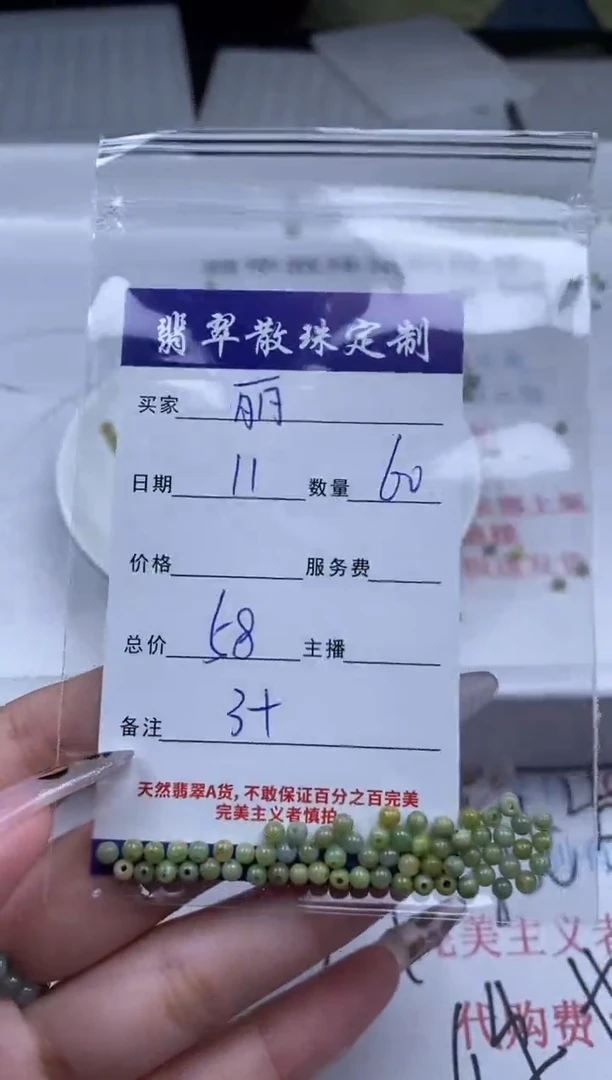 翡翠散珠定制
买家 丽
日期 11 数量 60
价格 服务费
总价 58 主播
备注 3+
天然翡翠A货,不敢保证百分之百完美
完美主义者慎拍
完美主义者
代购费